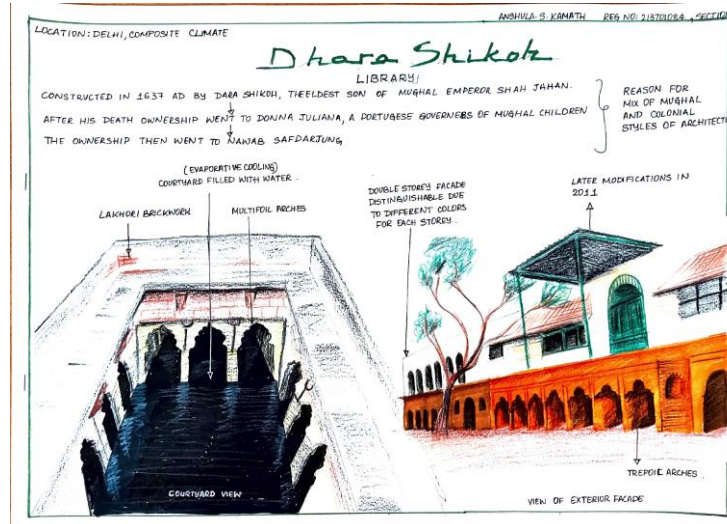 ANSHULA. S. KAMATH REG NO: 213701084, SECTIO
LOCATION: DELHI, COMPOSITE CLIMATE
Dhara Shikoh
LIBRARY
CONSTRUCTED IN 1637 AD BY DARA SHIKOH, THEELDEST SON OF MUGHAL EMPEROR SHAH JAHAN.
AFTER HIS DEATH OWNERSHIP WENT TO DONNA JULIANA, A PORTUGESE GOVERNESS OF MUGHAL CHILDREN
THE OWNERSHIP THEN WENT TO NAWAB SAFDARJUNG
REASON FOR
MIX OF MUGHAL
AND COLONIAL
STYLES OF ARCHITECTU
(EVAPORATIVE COOLING)
COURTYARD FILLED WITH WATER.
LAKHORI BRICKWORK
MULTIFOIL ARCHES
DOUBLE STOREY FACADE
DISTINGUISHABLE DUE
TO DIFFERENT COLORS
FOR EACH STOREY.
LATER MODIFICATIONS IN
2011
COURTYARD VIEW
TREFOIL ARCHES.
VIEW OF EXTERIOR FACADE